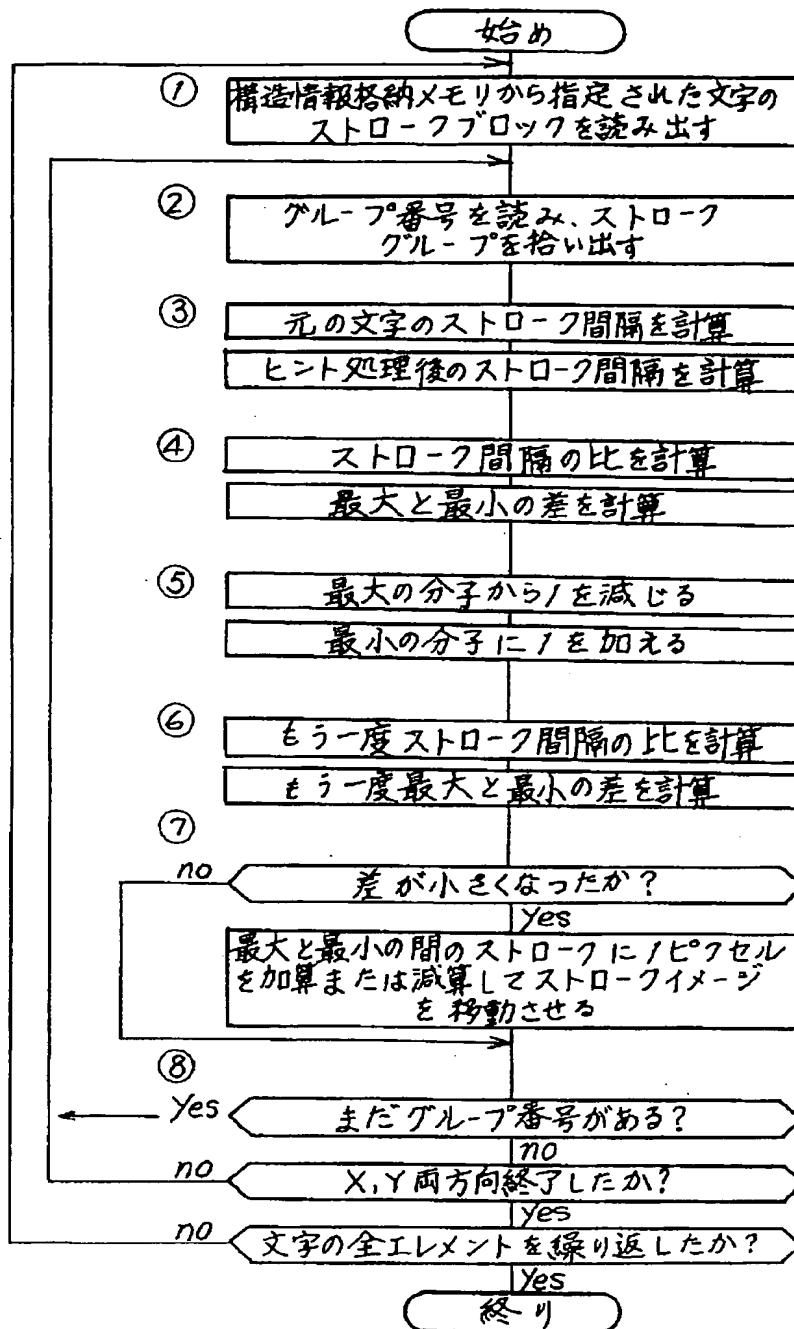 始め
① 構造情報格納メモリから指定された文字の
ストロークブロックを読み出す
② グループ番号を読み、ストローク
グループを拾い出す
③ 元の文字のストローク間隔を計算
ヒント処理後のストローク間隔を計算
④ ストローク間隔の比を計算
最大と最小の差を計算
⑤ 最大の分子から1を減じる
最小の分子に1を加える
⑥ もう一度ストローク間隔の比を計算
もう一度最大と最小の差を計算
⑦
no 差が小さくなったか?
Yes
最大と最小の間のストロークに1ピクセル
を加算または減算してストロークイメージ
を移動させる
⑧
Yes まだグループ番号がある?
no
no X,Y両方向終了したか?
Yes
no 文字の全エレメントを繰り返したか?
Yes
終り